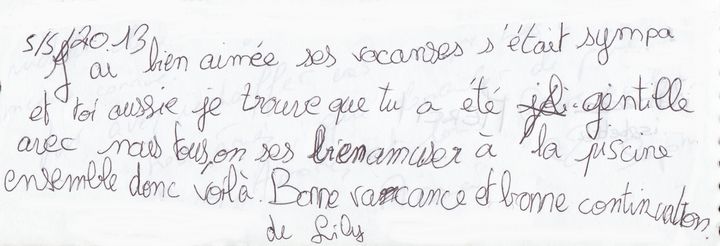 5/5/2013
J'ai bien aimée ses vocanses s'était sympa
et toi aussie je trouve que tu a été gentille
avec nous tous, on ses bienamuser à la piscine
ensemble donc voilà. Bonne vacance et bonne continuation.
de Lily